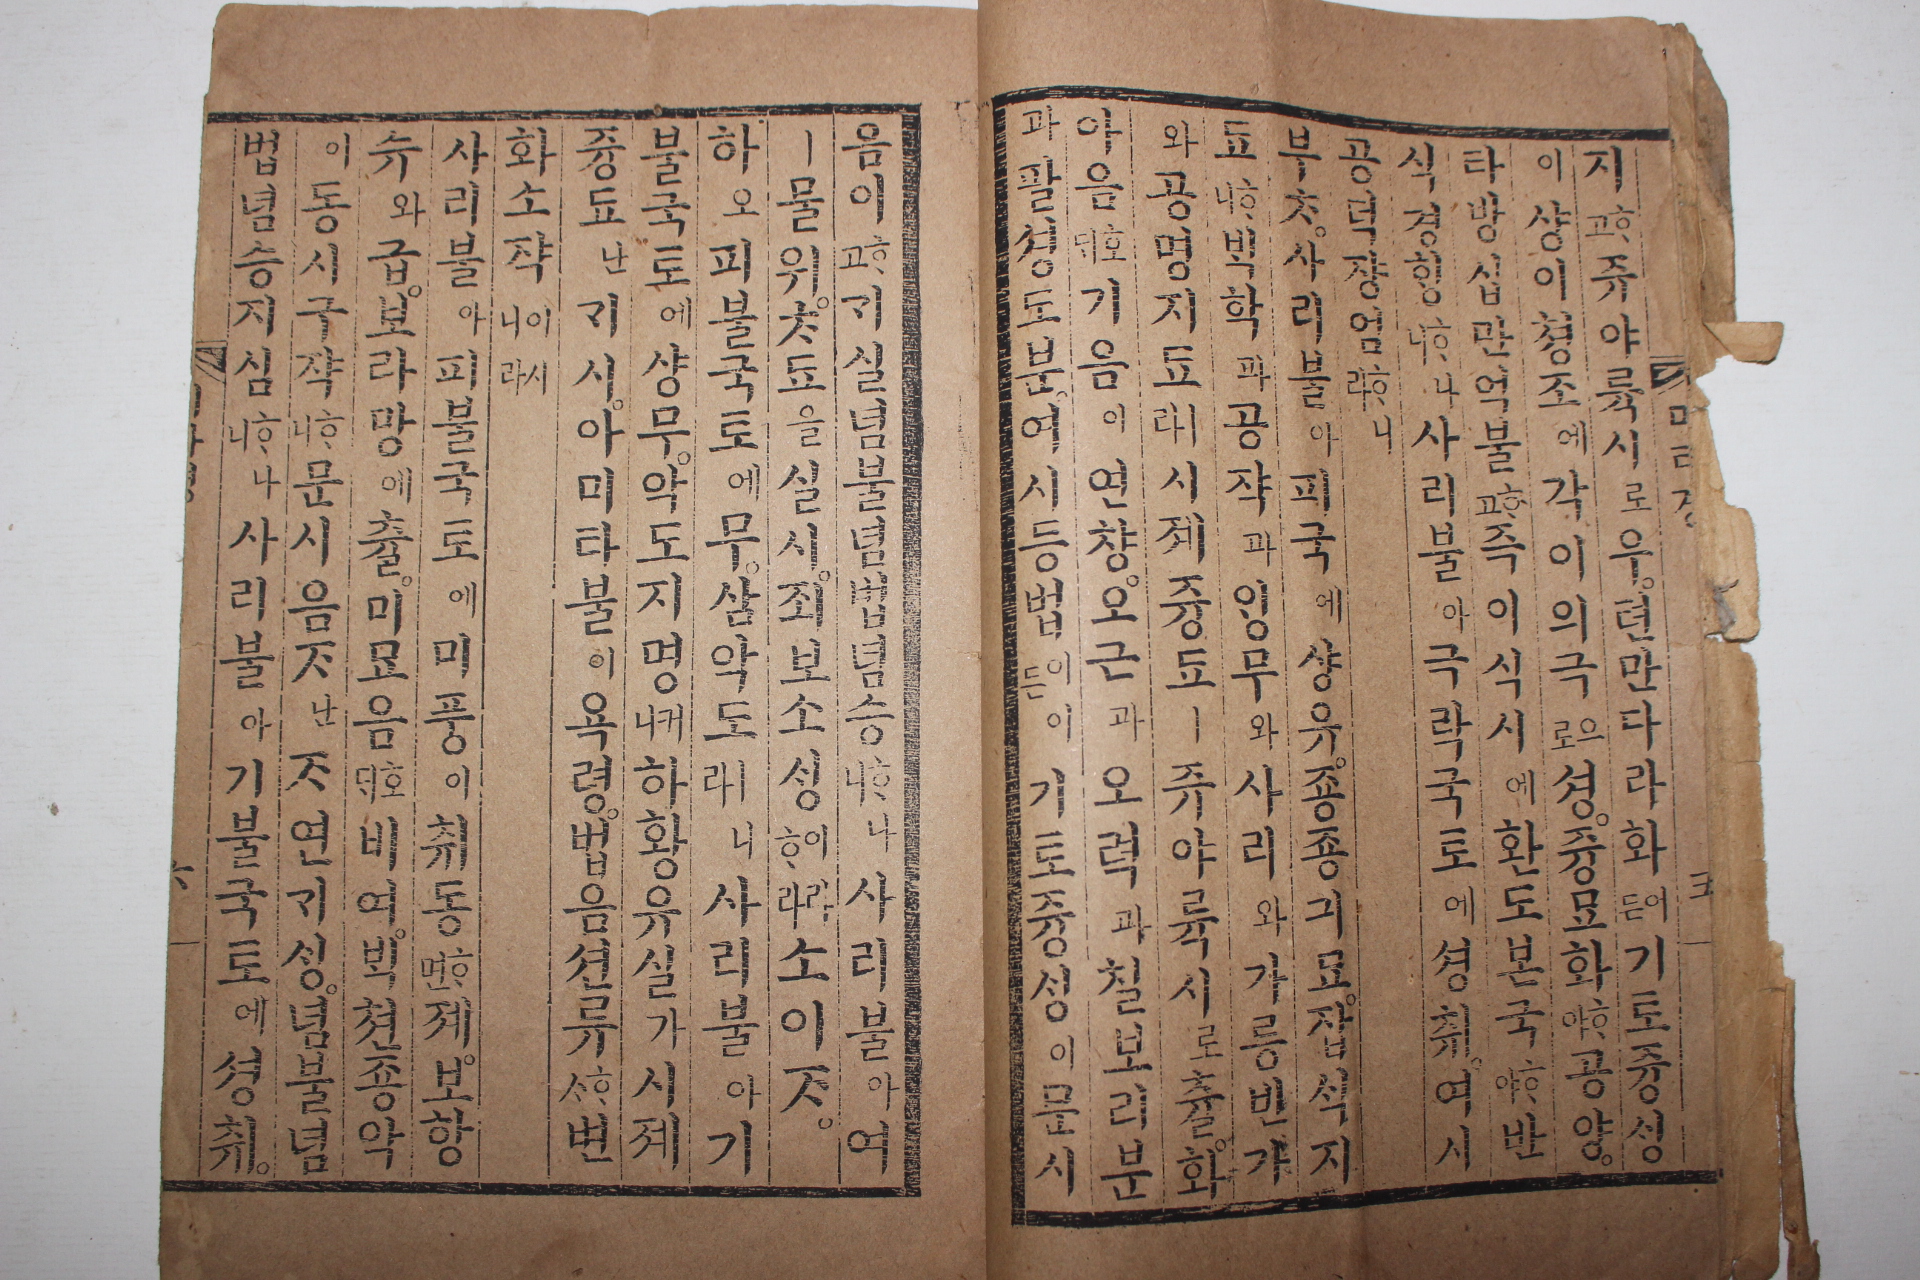 지ᄒᆞ고쥬야륙시로우。텬만타라화어든기도즁ᄉᆡᆼ
이샹이쳥죠에각이의극으로셩。즁묘화ᄒᆞ야공양。
타방십만억불ᄒᆞ고즉이식시에환도본국ᄒᆞ야반
식경ᄒᆡᆼᄒᆞ니나사리불아극락국토에셩취。여시
공덕쟝엄ᄒᆞ라니
부ᄎᆞ。사리불아피국에샹유。죵죵긔묘。잡ᄉᆡᆨ지
됴ᄒᆞ니ᄇᆡᆨ학과공쟉과잉무와사리와가릉빈가
와공명지됴ㅣ라시졔즁됴ㅣ쥬야륙시로츌。화
아음호ᄃᆡ기음이연챵。오근과오력과칠보리분
과팔셩도분。여시등법이든이기토즁ᄉᆡᆼ이문시
五
음이ᄒᆞ고ᄀᆡ실념불념법념승ᄒᆞ니나사리불아여
ㅣ물위。ᄎᆞ됴을실시。죄보소ᄉᆡᆼ이라ᄒᆞ라소이ᄌᆞ。
하오피불국토에무。삼악도ㅣ라니사리불아기
불국토에샹무。악도지명커니하황유실가시졔
즁됴난ᄀᆡ시。아미타불이욕령。법음션류ᄒᆞᄉᆞ변
화소쟉이시니라
사리불아피불국토에미풍이취동ᄒᆞ면졔。보항
슈와급。보라망에츌。미묘음호ᄃᆡ비여。ᄇᆡᆨ쳔죵악
이동시구쟉ᄒᆞ니문시음ᄌᆞ난ᄌᆞ연ᄀᆡᄉᆡᆼ。념불념
법념승지심ᄒᆞ니나사리불아기불국토에셩취。
六